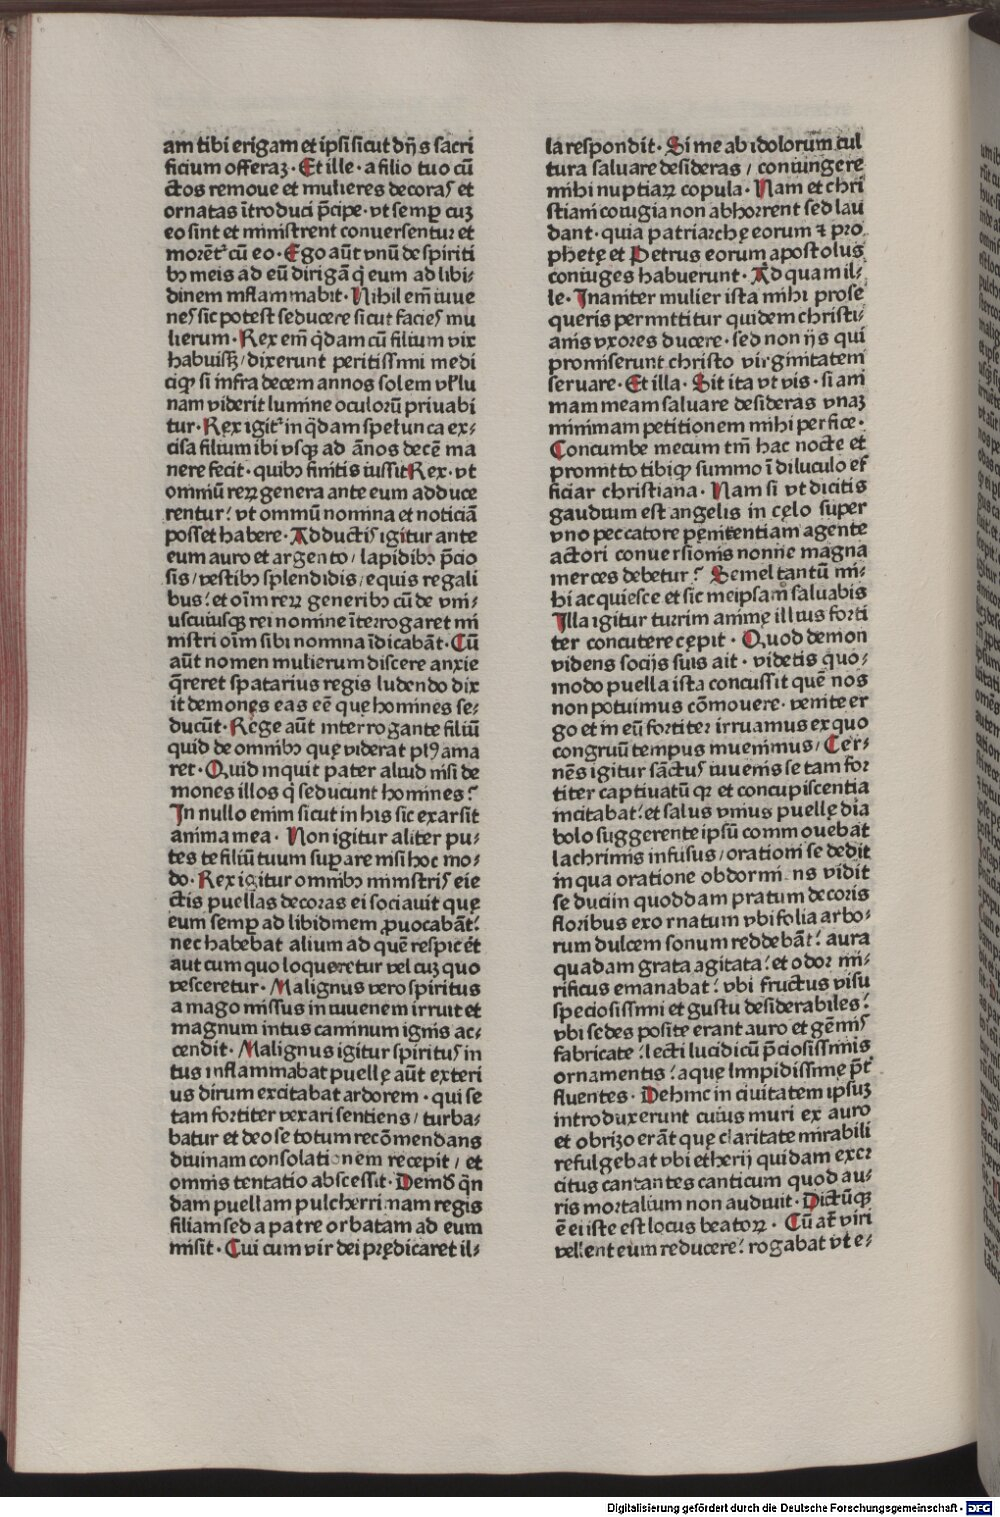 am tibi erigam et ipsi sicut dn̄s sacri
ficium offeraʒ · Et ille · a filio tuo cū
ctos remoue et mulieres decoras et
ornatas ītroduci p̄cipe · vt semꝑ cuʒ
eo sint et ministrent conuersentur et
morēt᷑ cū eo · Ego aūt vnū de spiriti
bꝫ meis ad eū dirigā q̇ eum ad libi⸗
dinem inflammabit · Nihil em̄ iuue
nes sic potest seducere sicut facies mu
lierum · Rex em̄ q̇dam cū filium vix
habuisʒ / dixerunt peritissimi medi
ciqꝫ si infra decem annos solem vł lu
nam viderit lumine oculorū priuabi
tur · Rex igit᷑ in q̇dam spelunca ex⸗
cisa filium ibi vsqꝫ ad ānos decē ma
nere fecit · quibꝫ finitis iussit Rex · vt
omniū reꝝ genera ante eum adduce
rentur: vt omniū nomina et noticiā
posset habere · Adductis igitur ante
eum auro et argento / lapidibꝫ p̄cio
sis / vestibꝫ splendidis / equis regali
bus: et oīm reꝝ generibꝫ cū de vni⸗
uscuiusqꝫ rei nomine īterrogaret mi
nistri oīm sibi nomina īdicabāt · Cū
aūt nomen mulierum discere anxie
q̄reret spatarius regis ludendo dix
it demones eas eē quę homines se⸗
ducūt · Rege aūt interrogante filiū
quid de omnibꝫ quę viderat plꝰ ama
ret · Quid inquit pater aliud nisi de
mones illos q̇ seducunt homines?
In nullo enim sicut in his sic exarsit
anima mea · Non igitur aliter pu⸗
tes te filiū tuum suꝑare nisi hoc mo⸗
do · Rex igitur omnibꝫ ministris eie
ctis puellas decoras ei sociauit quę
eum semꝑ ad libidinem ꝓuocabāt:
nec habebat alium ad quē respicēt
aut cum quo loqueretur vel cuʒ quo
vesceretur · Malignus vero spiritus
a mago missus in iuuenem irruit et
magnum intus caminum ignis ac⸗
cendit · Malignus igitur spiritus in
tus inflammabat puellę aūt exteri
us dirum excitabat ardorem · qui se
tam fortiter vexari sentiens / turba⸗
batur et deo se totum recōmendans
diuinam consolationem recepit / et
omnis tentatio abscessit · Demū q̄n
dam puellam pulcherrimam regis
filiam sed a patre orbatam ad eum
misit · Cui cum vir dei prędicaret il⸗
la respondit · Si me ab idolorum cul
tura saluare desideras / coniungere
mihi nuptiaꝝ copula · Nam et chri
stiani coniugia non abhorrent sed lau
dant · quia patriarchę eorum ⁊ pro
phetę et Petrus eorum apostolus
coniuges habuerunt · Ad quam il⸗
le · Inaniter mulier ista mihi prose
queris permittitur quidem christi⸗
anis vxores ducere · sed non ijs qui
promiserunt christo virginitatem
seruare · Et illa · Sit ita vt vis · si ani
mam meam saluare desideras vnaʒ
minimam petitionem mihi perfice ·
Concumbe mecum tm̄ hac nocte et
promitto tibi qꝫ summo ī diluculo ef
ficiar christiana · Nam si vt dicitis
gaudium est angelis in cęlo super
vno peccatore pęnitentiam agente
actori conuersionis nonne magna
merces debetur? Semel tantū mi⸗
hi acquiesce et sic meipsam saluabis
Illa igitur turrim animę illius forti
ter concutere cępit · Quod demon
videns socijs suis ait · videtis quo⸗
modo puella ista concussit quē nos
non potuimus cōmouere · venite er
go et in eū fortiter irruamus ex quo
congruū tempus inuenimus / Cer⸗
nēs igitur sāctus iuuenis se tam for
titer captiuatū qꝛ et concupiscentia
incitabat: et salus vnius puellę dia
bolo suggerente ipsū commouebat
lachrimis infusus / orationi se dedit
in qua oratione obdormiens vidit
se duci in quoddam pratum decoris
floribus exornatum vbi folia arbo⸗
rum dulcem sonum reddebāt: aura
quadam grata agitata: et odor mi⸗
rificus emanabat: vbi fructus visu
speciosissimi et gustu desiderabiles:
vbi sedes posite erant auro et gēmis
fabricate: lecti lucidi cū p̄ciosissimis
ornamentis: aquę limpidissimę p̄t᷑
fluentes · Dehinc in ciuitatem ipsuʒ
introduxerunt cuius muri ex auro
et obrizo erāt quę claritate mirabili
refulgebat vbi etherij quidam exer
citus cantantes canticum quod au⸗
ris mortalium non audiuit · Dictūqꝫ
ē ei iste est locus beatoꝝ · Cū at᷑ viri
vellent eum reducere: rogabat vt e⸗
Digitalisierung gefördert durch die Deutsche Forschungsgemeinschaft - DFG